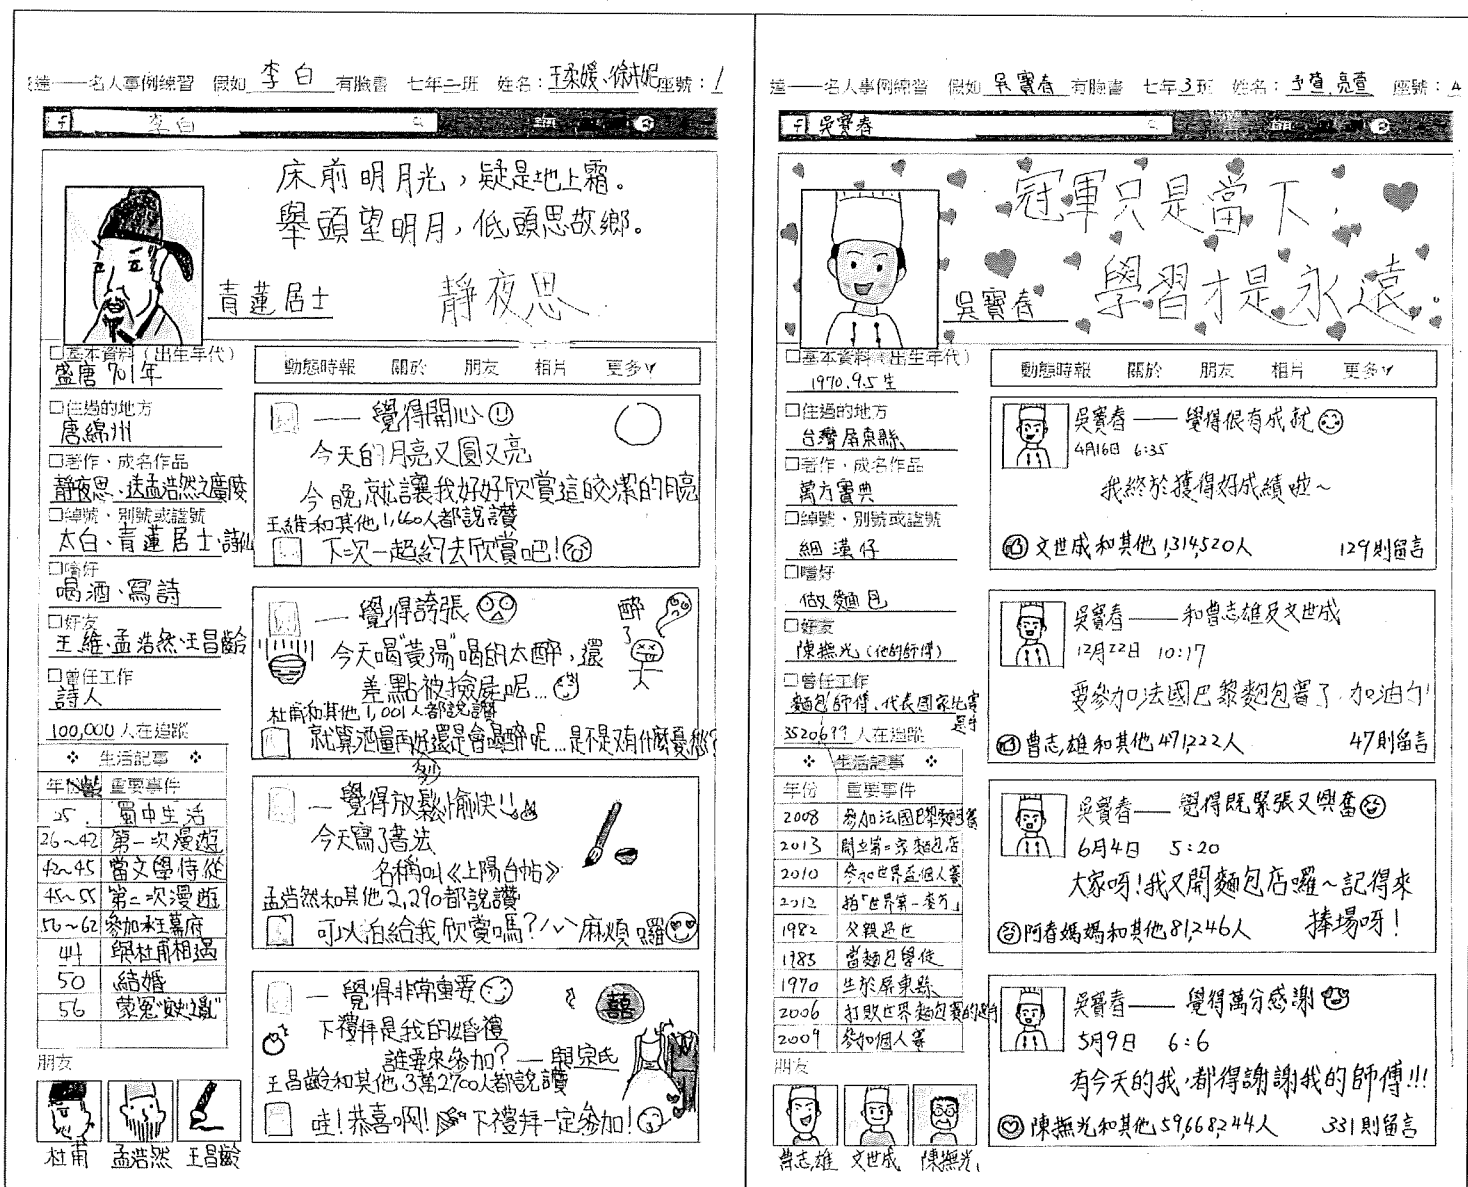 遠——名人事例練習 假如 李白 有臉書 七年二班 姓名：王柔媛、徐 妮 座號：1
f 李白
床前明月光，疑是地上霜。
舉頭望明月，低頭思故鄉。
青蓮居士 靜夜思
□基本資料（出生年代）
盛唐 701年
□住過的地方
唐綿州
□著作、成名作品
靜夜思、送孟浩然之廣陵
□綽號、別號或諡號
太白、青蓮居士、詩仙
□嗜好
喝酒、寫詩
□好友
王維、孟浩然、王昌齡
□曾任工作
詩人
100,000 人在追蹤
❖ 生活記事 ❖
年齡 重要事件
25 蜀中生活
26~42 第一次漫遊
42~45 當文學侍從
45~55 第二次漫遊
56~62 參加永王幕府
44 與杜甫相遇
50 結婚
56 蒙冤
朋友
杜甫 孟浩然 王昌齡
動態時報 關於 朋友 相片 更多
—— 覺得開心
今天的月亮又圓又亮
今晚就讓我好好欣賞這皎潔的月亮
王維和其他1,660人都說讚
下次一起約去欣賞吧!
— 覺得誇張
醉了
今天喝"黃湯"喝的太醉，還
差點被撿屍呢...
杜甫和其他1,001人都說讚
就算酒量再好還是會喝醉呢...是不是又有什麼憂愁?
— 覺得放鬆愉快!!
今天寫了書法
名稱叫《上陽台帖》
孟浩然和其他2,290都說讚
妙
可以治給我欣賞嗎?^^麻煩囉
— 覺得非常重要
下禮拜是我的婚禮
誰要來參加? — 與宗氏
囍
王昌齡和其他3萬2700人都說讚
哇!恭喜啊! 下禮拜一定參加!
遠——名人事例練習 假如 吳寶春 有臉書 七年3班 姓名：予萱、亮萱 座號：4
f 吳寶春
冠軍只是當下，
學習才是永遠。
吳寶春
□基本資料（出生年代）
1970.9.5生
□住過的地方
台灣屏東縣
□著作、成名作品
萬方寶典
□綽號、別號或諡號
細漢仔
□嗜好
做麵包
□好友
陳撫光（他的師傅）
□曾任工作
麵包師傅、代表國家比賽選手
3520699 人在追蹤
❖ 生活記事 ❖
年份 重要事件
2008 參加法國巴黎麵包賽
2013 開立第二家麵包店
2010 參加世界盃個人賽
2012 拍「世界第一麥方」
1982 父親過世
1985 當麵包學徒
1970 生於屏東縣
2006 打敗世界麵包賽的選手
2009 參加個人賽
朋友
曹志雄 文世成 陳撫光
動態時報 關於 朋友 相片 更多
吳寶春——覺得很有成就
4月16日 6:35
我終於獲得好成績啦~
文世成和其他1,314,520人 129則留言
吳寶春——和曹志雄及文世成
12月22日 10:17
要參加法國巴黎麵包賽了，加油ㄅ!
曹志雄和其他471,222人 47則留言
吳寶春——覺得既緊張又興奮
6月4日 5:20
大家呀!我又開麵包店囉~記得來
捧場呀!
阿春媽媽和其他81,246人
吳寶春——覺得萬分感謝
5月9日 6:6
有今天的我，都得謝謝我的師傅!!!
陳撫光和其他59,668,244人 331則留言